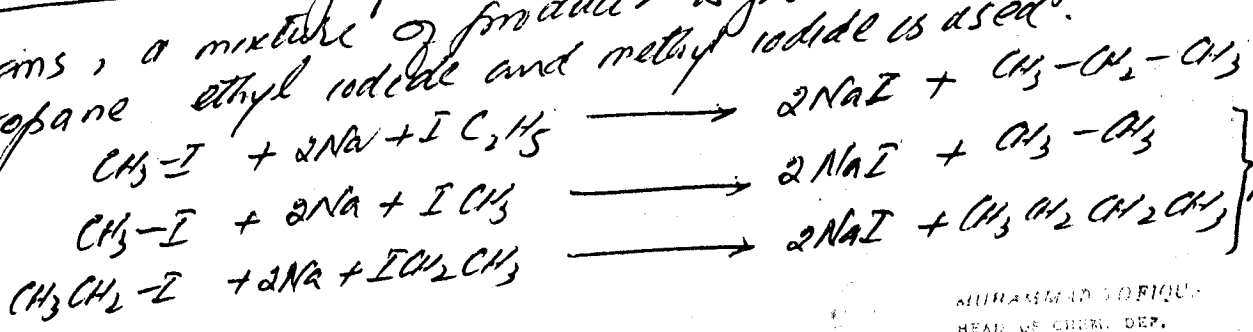 , a mixture of product is
ethyl iodide and methyl iodide is used.
CH3-I + 2Na + I C2H5 ⟶ 2NaI + CH3-CH2-CH3
CH3-I + 2Na + I CH3 ⟶ 2NaI + CH3-CH3
CH3CH2-I + 2Na + ICH2CH3 ⟶ 2NaI + CH3CH2CH2CH3
MUHAMMAD
HEAD OF CHEM. DEP.